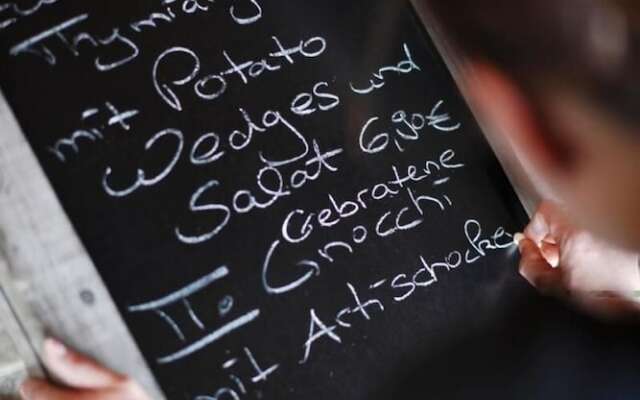 Thymian
mit Potato
Wedges und
Salat 6,90€
II. Gebratene
Gnocchi
mit Artischocke